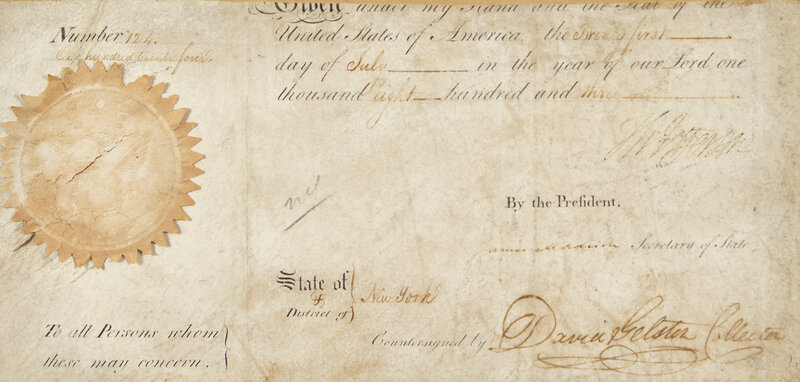 Number 124.
One hundred twenty four
Given under my Hand and the Seal of the
United States of America, the Twenty first
day of July in the year of our Lord one
thousand eight hundred and three
Th Jefferson
By the Preſident,
James Madison Secretary of State
State of
&
District of
New York
Countersigned by David Gelston Collector
To all Persons whom
these may concern.